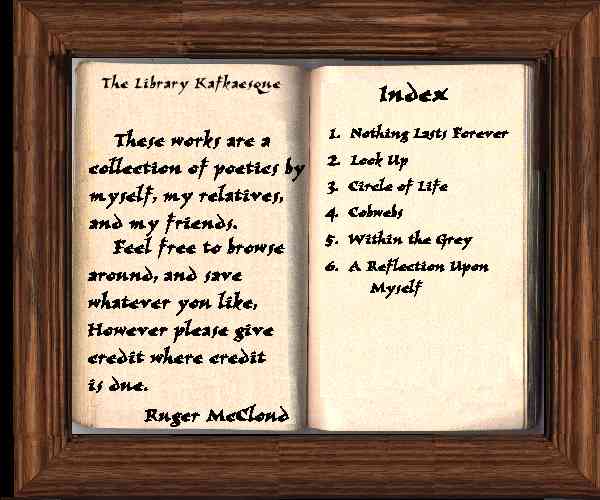 The Library Kafkaesque
These works are a
collection of poetics by
myself, my relatives,
and my friends.
Feel free to browse
around, and save
whatever you like,
However please give
credit where credit
is due.
Ruger McCloud
Index
1. Nothing Lasts Forever
2. Look Up
3. Circle of Life
4. Cobwebs
5. Within the Grey
6. A Reflection Upon
Myself